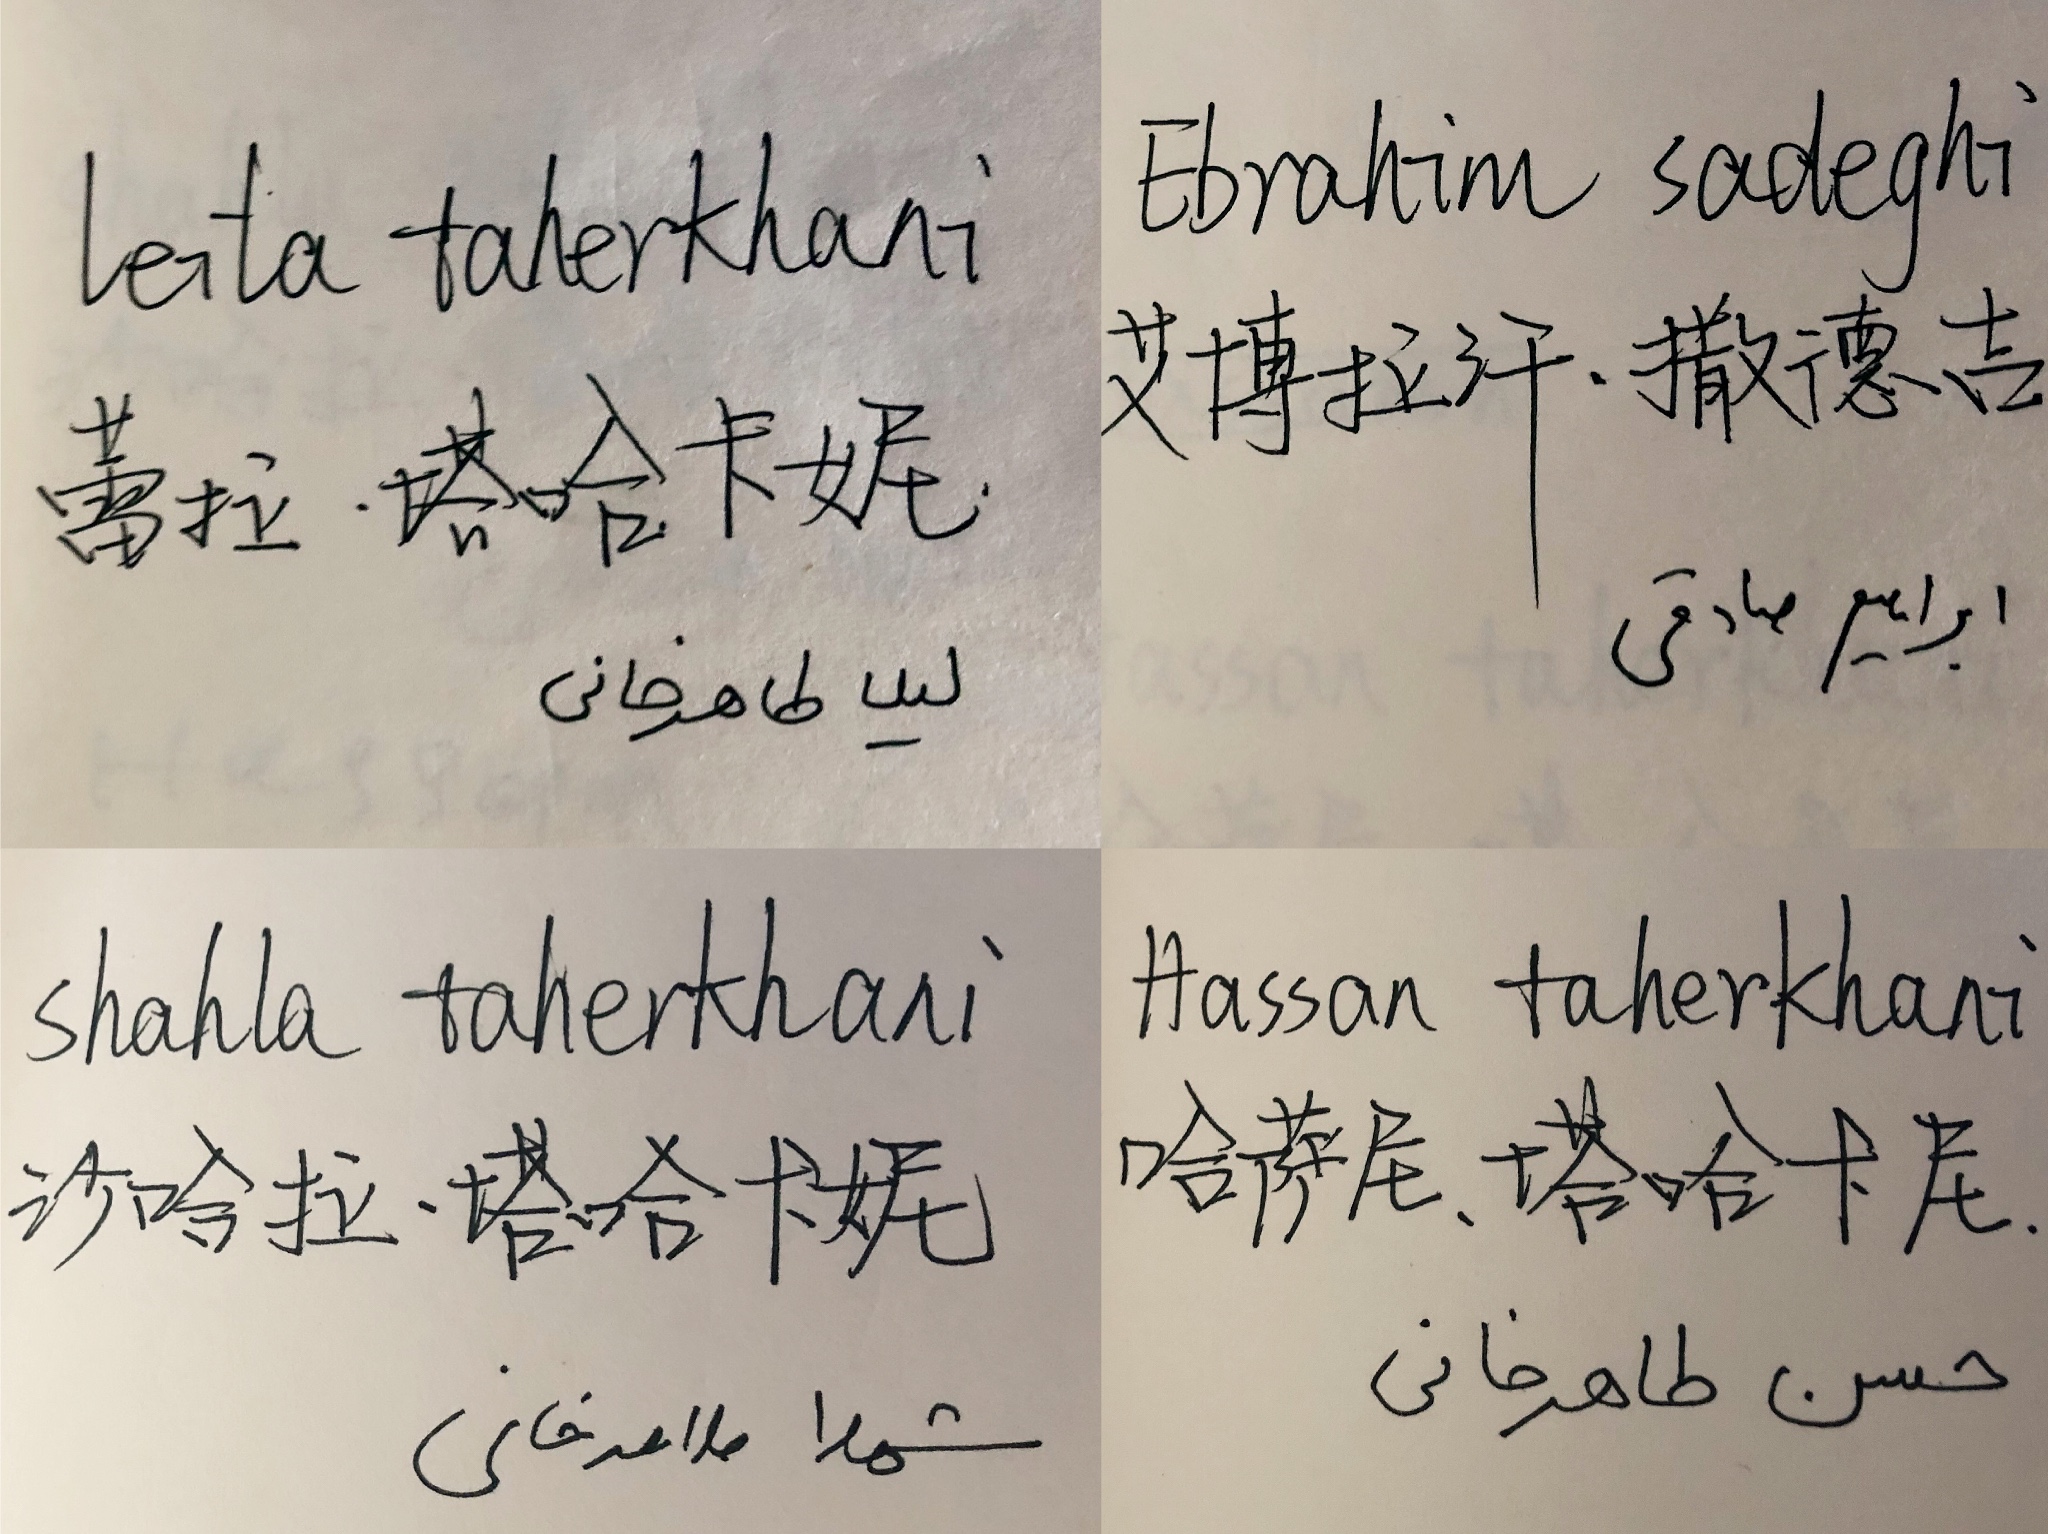 leila taherkhani
蕾拉·塔哈卡妮.
لیلا طاهرخانی
Ebrahim sadeghi
艾博拉汗·撒德吉
ابراهیم صادقی
shahla taherkhani
沙哈拉·塔哈卡妮
شهلا طاهرخانی
Hassan taherkhani
哈萨尼、塔哈卡尼.
حسن طاهرخانی